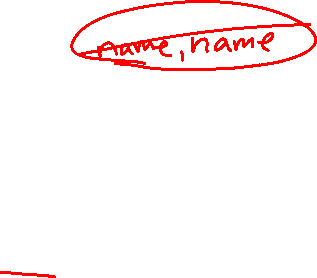 name, name